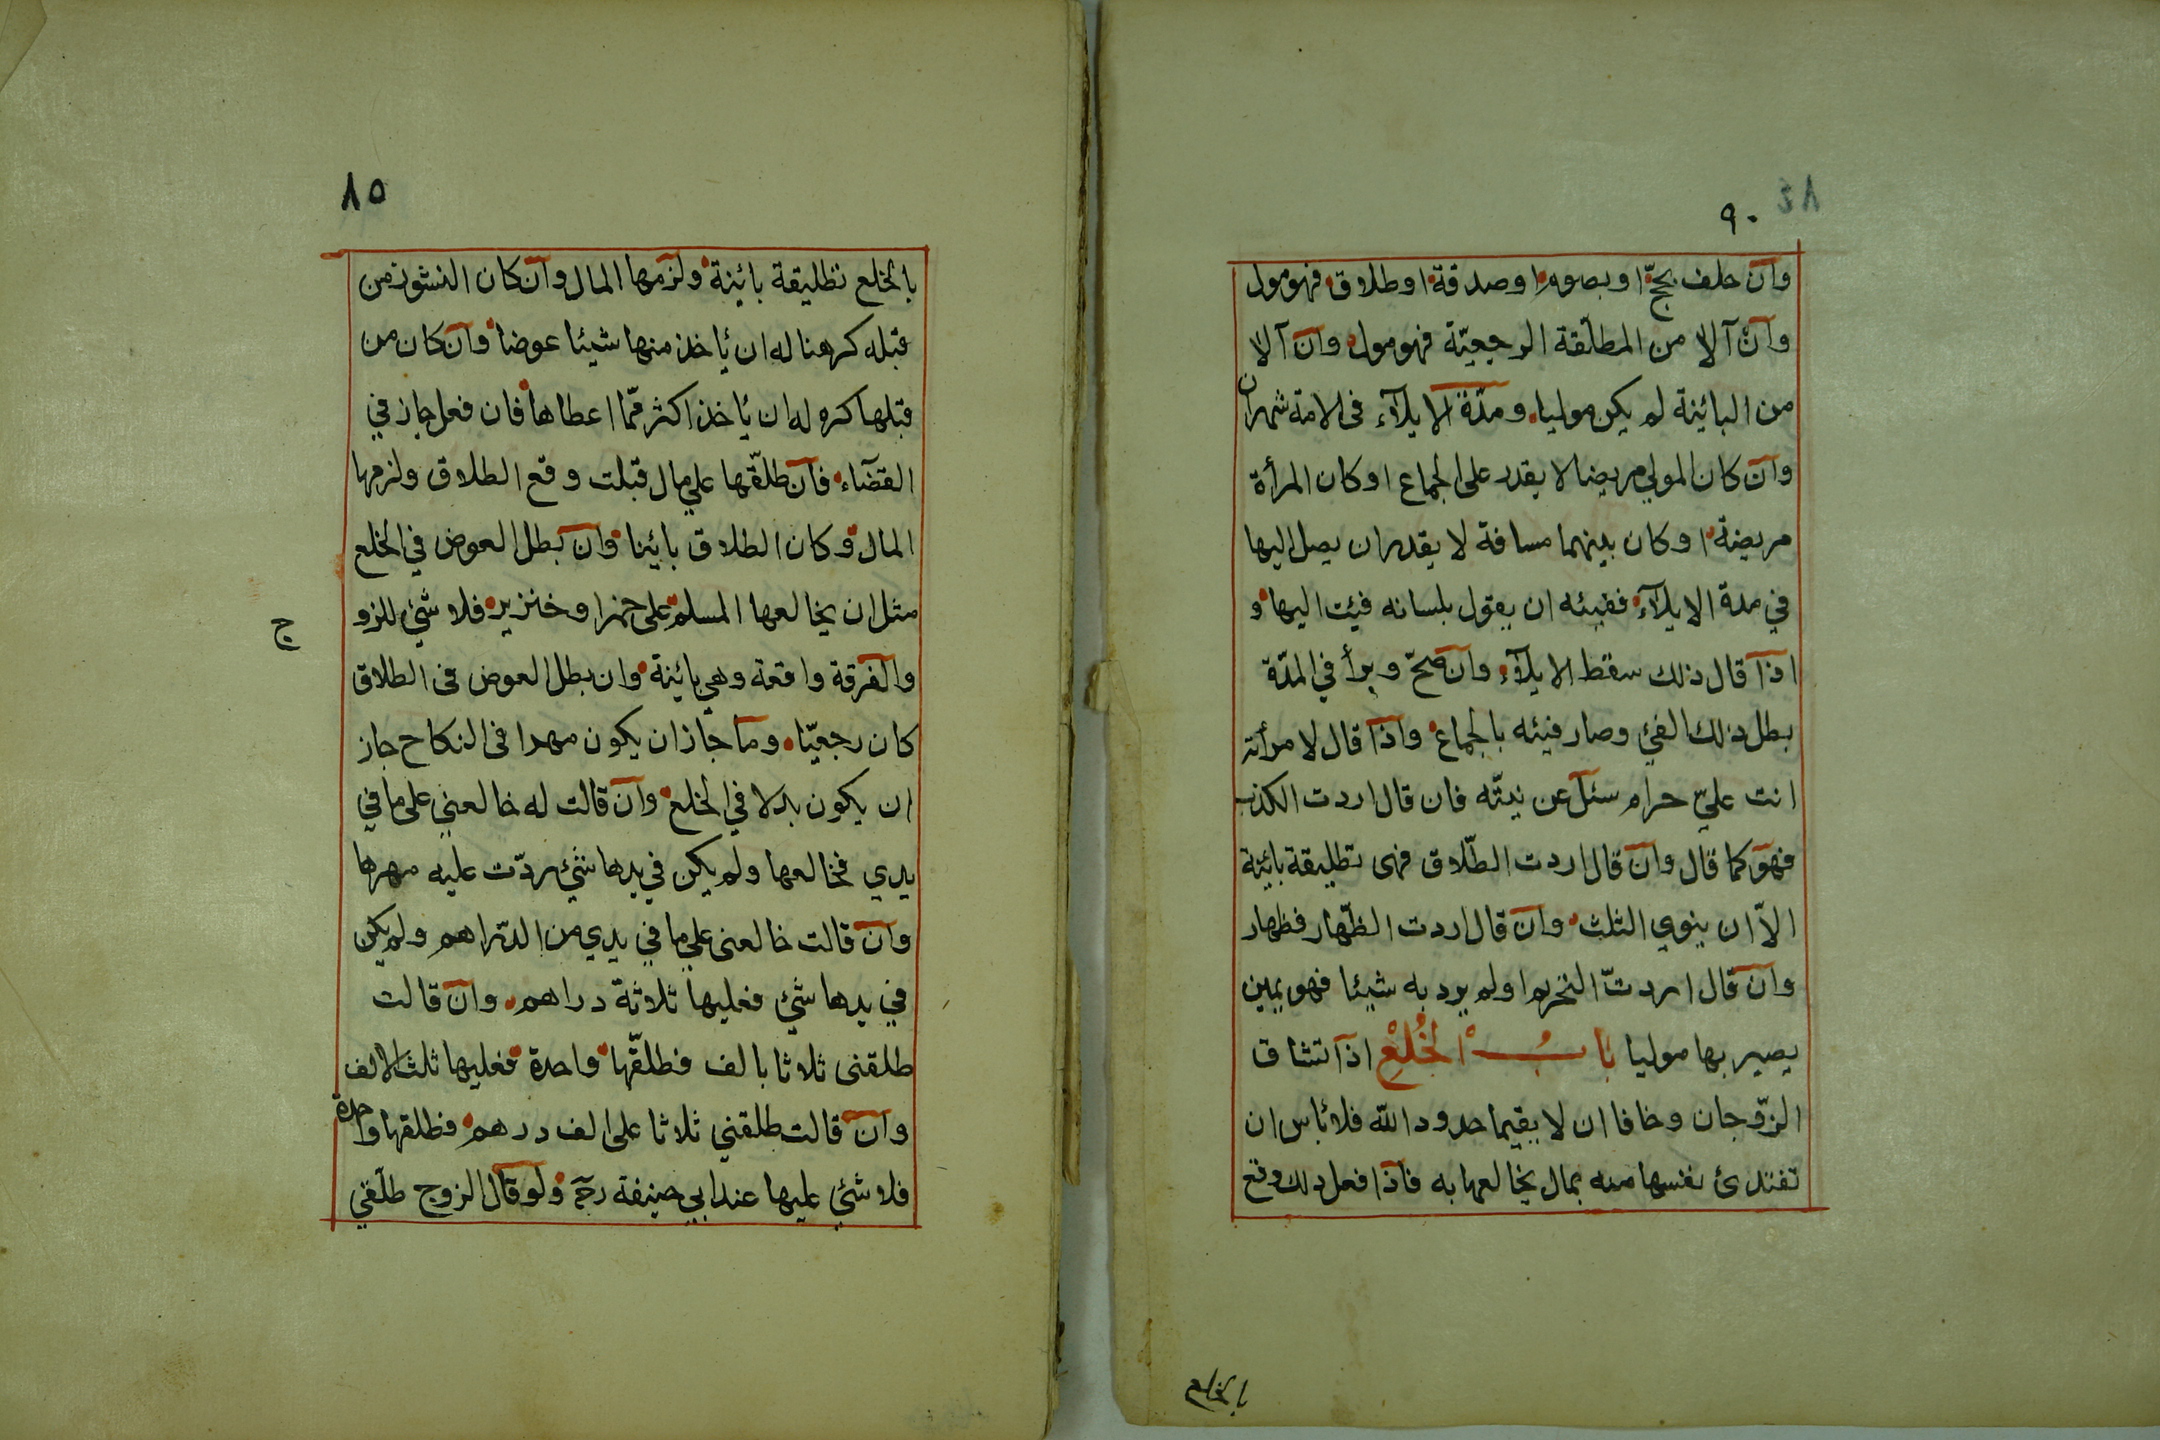 ٨٤
٩٠
وان حلف بحج او بصوم او صدقة او طلاق فهو مول
وان آلا من المطلّقة الرجعيّة فهو مول وان آلا
من البائنة لم يكن موليا ومدّة الايلآء فى الامة شهران
وان كان المولي مريضا لا يقدر على الجماع او كان المرأة
مريضة او كان بينهما مسافة لا يقدر ان يصل اليها
في مدة الايلآء ففيئه ان يقول بلسانه فيئت اليها و
اذا قال ذلك سقط الايلآء وان صحّ وبرأ في المدّة
بطل ذلك الفئ وصار فيئه بالجماع واذا قال لامرأته
انت عليّ حرام سئل عن نيتّه فان قال اردت الكذب
فهو كما قال وان قال اردت الطّلاق فهى تطليقة بائنة
الاّ ان ينوي الثلث وان قال اردت الظّهار فظهار
وان قال اردتّ التحريم او لم يرد به شيئا فهو يمين
يصير بها موليا بابُ الخُلعْ اذا تشاق
الزّوجان وخافا ان لا يقيما حدود اللّه فلا بأس ان
تفتدئ نفسها منه بمال يخالعها به فاذا فعل ذلك وقع
بالخلع
٨٥
بالخلع تطليقة بائنة ولزمها المال وان كان النشوز من
قبله كرهنا له ان يأخذ منها شيئا عوضا وان كان من
قبلها كره له ان يأخذ اكثر ممّا اعطاها فان فعل جاز في
القضآء فان طلّقها علي مال قبلت وقع الطلاق ولزمها
المال وكان الطلاق بائنا وان بطل العوض في الخلع
مثل ان يخالعها المسلم على خمر او خنزير فلا شئ للزو
ج
والفرقة واقعة وهي بائنة وان بطل العوض فى الطلاق
كان رجعيّا وما جاز ان يكون مهرا فى النكاح جاز
ان يكون بدلا في الخلع وان قالت له خالعني على ما في
يدي فخالعها ولم يكن في يدها شئ ردّت عليه مهرها
وان قالت خالعنى علي ما في يدي من الدّراهم ولم يكن
في يدها شئ فعليها ثلاثة دراهم وان قالت
طلقنى ثلاثا بالف فطلّقها واحدة فعليها ثلث الالف
وان قالت طلقني ثلاثا على الف درهم فطلقها واحدة
فلا شئ عليها عند ابي حنيفة رحه ولو قال الزوج طلّقي